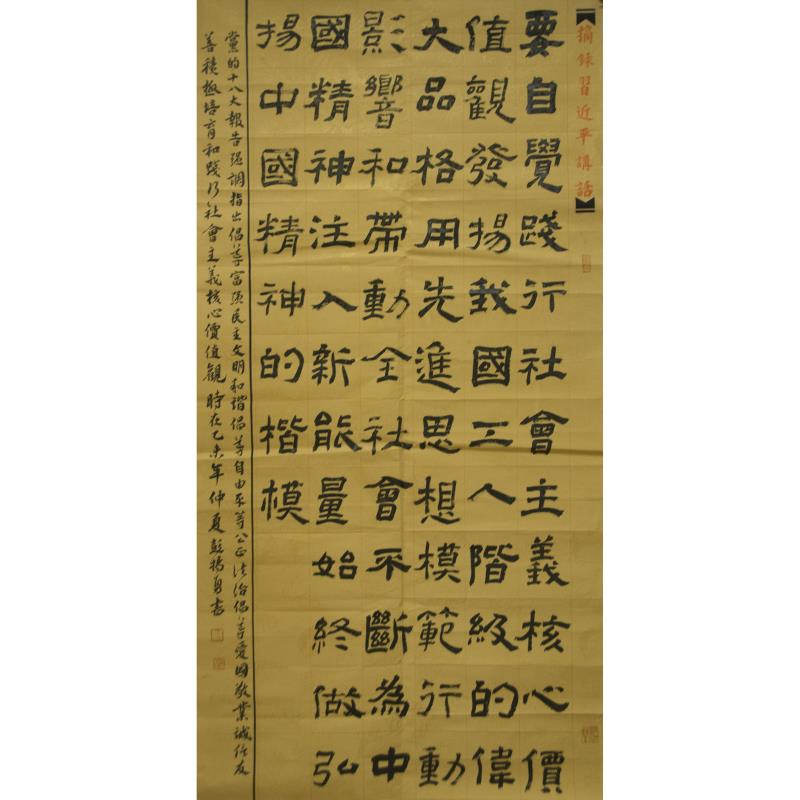 摘錄習近平講話
要自覺踐行社會主義核心價
值觀發揚我國工人階級的偉
大品格用先進思想模範行動
影響和帶動全社會不斷為中
國精神注入新能量始終做弘
揚中國精神的楷模
黨的十八大報告强調指出倡導富强民主文明和諧倡導自由平等公正法治倡導愛國敬業誠信友
善積極培育和踐行社會主義核心價值觀時在乙未年仲夏彭揚勇書